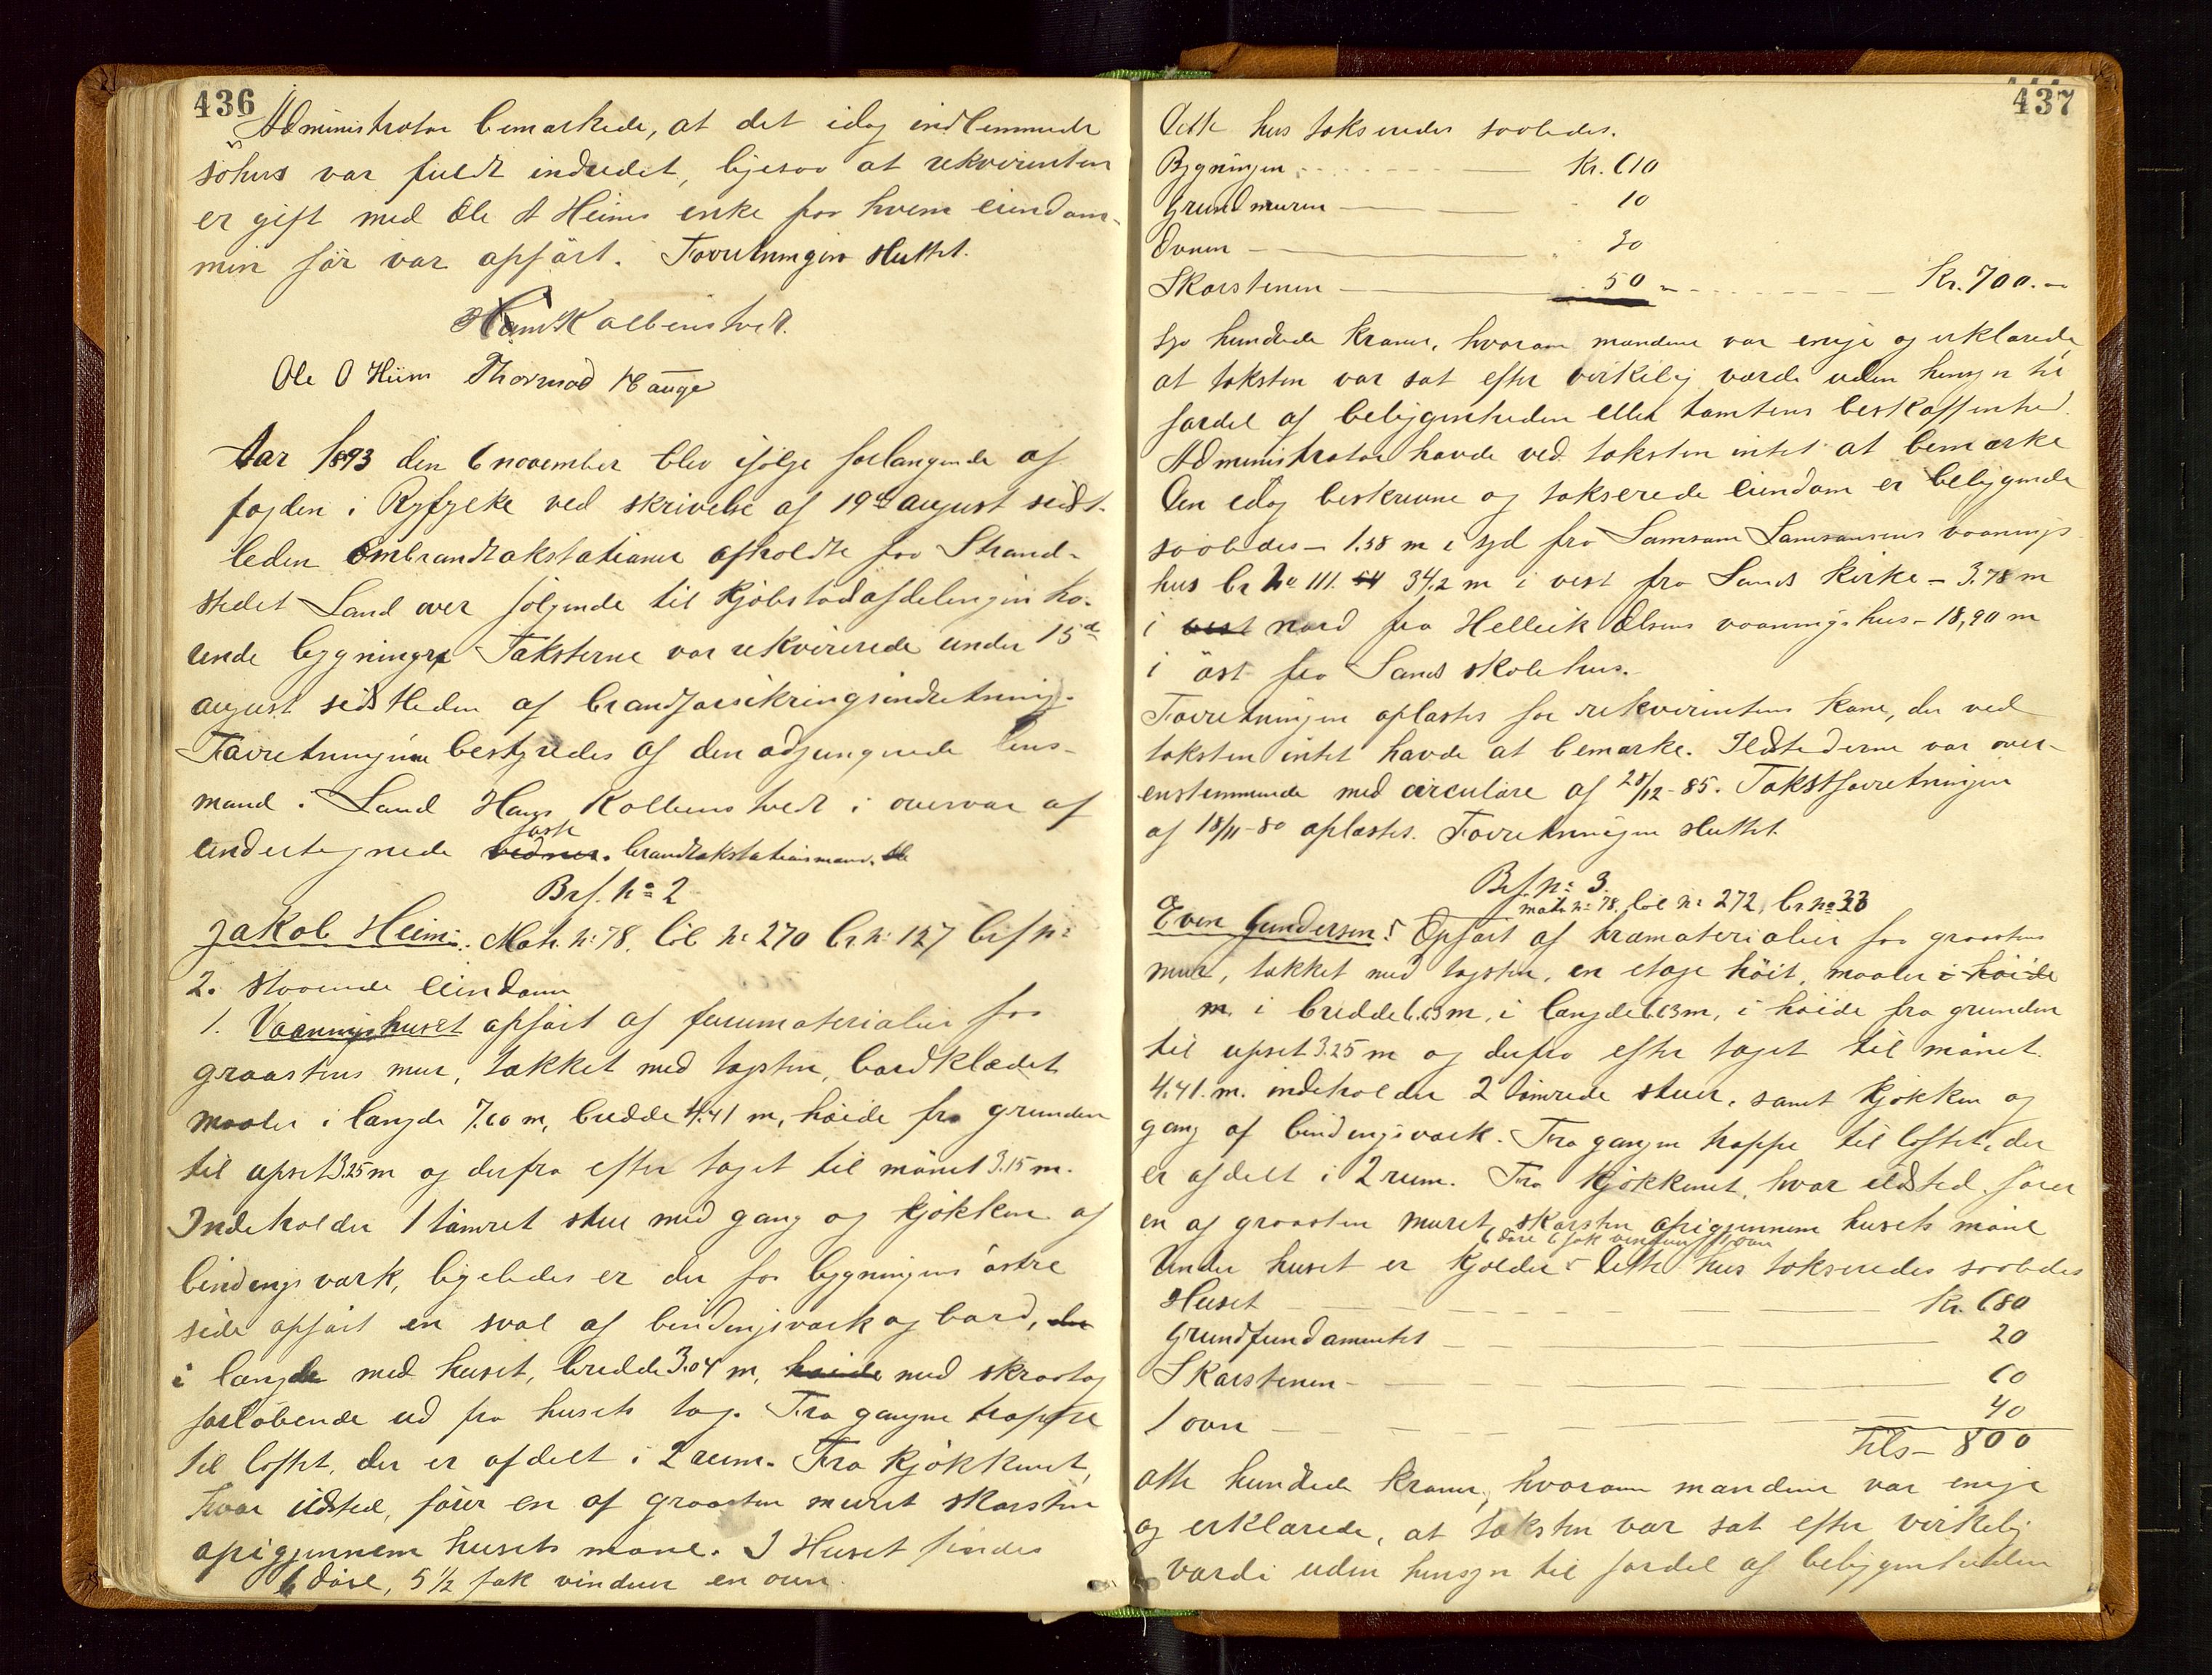 436
Administrator bemærkede, at det idag indlemmede
søhus var fuldt indredet, ligesaa at rekvirenten
er gift med Ole A Heims enke for hvem eiendom-
min før var opført. Forretningen sluttet.
Hans Kolbenstvedt.
Ole O Hiim Thormod Hauge
Aar 1893 den 6 november blev ifølge forlangende af
fogden i Ryfylke ved skrivelse af 19de august sidst-
leden ombrandtakstationer afholdte for Strand-
stedet Sand over følgende til Kjøbstadafdelingen hø-
rende bygninger. Taksterne var rekvirerede under 15de
august sidstleden af brandforsikringsindretning.
Forretningerne bestyredes af den adjungerede lens-
mand i Sand Hans Kolbenstvedt i overvær af
undertegnede faste brandtakstationsmænd.
Brf. no 2
Jakob Heim: Matr. no 78. løb no 270 br no 127 brf no
2. staaende eiendom
1. Vaaningshuset opført af furumaterialier paa
graastens mur, tækket med tagsten, bordklædet
maaler i længde 7.60 m, bredde 4.41 m, høide fra grunden
til upset 3.25 m og derfra efter taget til mønet 3.15 m.
Indeholder 1 tømret stue med gang og kjøkken af
bindingsværk, ligeledes er der paa bygningens østre
side opført en sval af bindingsværk og bord, der
i længde med huset, bredde 3.04 m, høide med skraatag
forløbende ud fra husets tag. Fra gangen trappe
til loftet, der er afdelt i 2 rum. Fra kjøkkenet,
hvor ildsted, fører en af graasten muret skorsten
opigjennem husets møne. I Huset findes
6 døre, 5 1/2 fak vinduer en ovn.
437
Dette hus takseredes saaledes.
Bygningen Kr. 610
Grundmuren 10
Ovnen 30
Skorstenen 50 Kr. 700.-
syv hundrede kroner, hvorom mændene var enige og erklærede
at taksten var sat efter virkelig værde uden hensyn til
fordel af beliggenheden eller tomtens beskaffenhed.
Administrator havde ved taksten intet at bemærke
Den idag beskrevne og takserede eiendom er beliggende
saaledes - 1.58 m i syd fra Samson Samsonsens vaanings
hus br no 111. 54 34,2 m i vest fra Sands kirke - 3.78 m
i vest nord fra Hellik Olsens vaaningshus - 18,90 m
i øst fra Sands skolehus.
Forretningen oplæstes for rekvirentens kone, der ved
taksten intet havde at bemærke. Ildstederne var over-
enstemmende med circulære af 28/12-85. Takstforretningen
af 18/11-80 oplæstes. Forretningen sluttet.
Brf. no 3.
matr no 78, løb no 272, br no 33
Even Gundersen: Opført af træmaterialier paa graastens
mur, tækket med tagsten, en etage høit, maaler i høide
m. i bredde 6.63 m, i længde 6.63 m, i høide fra grunden
til upset 3.25 m og derfra efter taget til mønet
4.41. m. indeholder 2 tømrede stuer, samt kjøkken og
gang af bindingsværk. Fra gangen trappe til loftet, der
er afdelt i 2 rum. Fra kjøkkenet, hvor ildsted, fører
en af graasten muret skorsten opigjennem husets møne
6 døre 6 fak vinduer 1 ovn
Under huset er kjelder Dette hus takseredes saaledes
Huset Kr. 680
Grundfundamentet 20
Skorstenen 60
1 ovn 40
Tils - 800
otte hundrede kroner, hvorom mændene var enige
og erklærede, at taksten var sat efter virkelig
værdi uden hensyn til fordel af beliggenheden